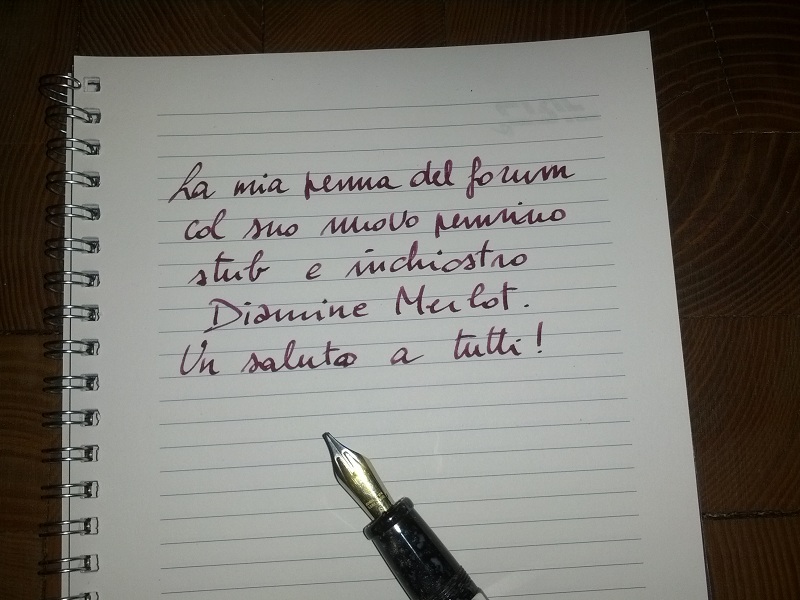 La mia penna del forum
col suo nuovo pennino
stub e inchiostro
Diamine Merlot.
Un saluto a tutti!